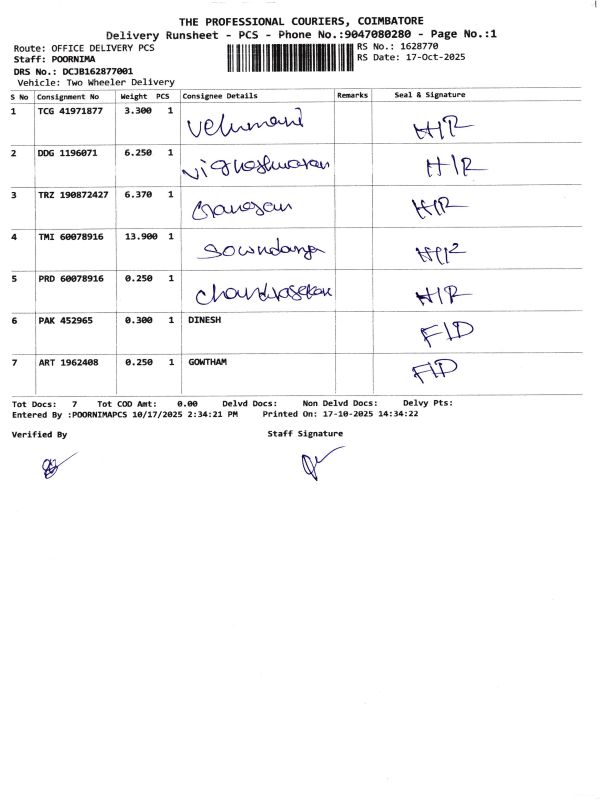 THE PROFESSIONAL COURIERS, COIMBATORE
Delivery Runsheet - PCS - Phone No.:9047080280 - Page No.:1
Route: OFFICE DELIVERY PCS RS No.: 1628770
Staff: POORNIMA RS Date: 17-Oct-2025
DRS No.: DCJB162877001
Vehicle: Two Wheeler Delivery
S No Consignment No Weight PCS Consignee Details Remarks Seal & Signature
1 TCG 41971877 3.300 1 Velumani H/R
2 DDG 1196071 6.250 1 Vigneshwaran H/R
3 TRZ 190872427 6.370 1 H/R
4 TMI 60078916 13.900 1 Sowndarya H/R
5 PRD 60078916 0.250 1 Chandrasekar H/R
6 PAK 452965 0.300 1 DINESH F/D
7 ART 1962408 0.250 1 GOWTHAM F/D
Tot Docs: 7 Tot COD Amt: 0.00 Delvd Docs: Non Delvd Docs: Delvy Pts:
Entered By :POORNIMAPCS 10/17/2025 2:34:21 PM Printed On: 17-10-2025 14:34:22
Verified By Staff Signature